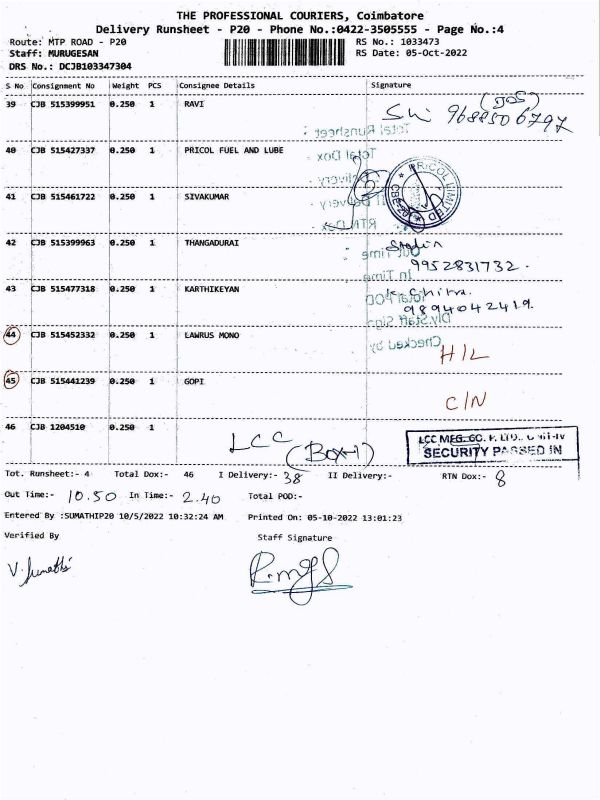 THE PROFESSIONAL COURIERS, Coimbatore
Delivery Runsheet - P20 - Phone No.:0422-3505555 - Page No.:4
Route: MTP ROAD - P20 RS No.: 1033473
Staff: MURUGESAN RS Date: 05-Oct-2022
DRS No.: DCJB103347304
S No Consignment No Weight PCS Consignee Details Signature
39 CJB 515399951 0.250 1 RAVI 9688506797
Total Runsheet :
40 CJB 515427337 0.250 1 PRICOL FUEL AND LUBE PRICOL LIMITED
Total Dox -
41 CJB 515461722 0.250 1 SIVAKUMAR
42 CJB 515399963 0.250 1 THANGADURAI Stalin
Out Time :
9952831732.
In Time -
43 CJB 515477318 0.250 1 KARTHIKEYAN K. Chitra.
Total POD
9894042419.
Dly.Staff Sign
44 CJB 515452332 0.250 1 LAWRUS MONO H/L
Checked by
45 CJB 515441239 0.250 1 GOPI C/N
46 CJB 1204510 0.250 1 LCC (Box-1) LCC MFG. CO. P. LTD., UNIT-IV
SECURITY PASSED IN
Tot. Runsheet:- 4 Total Dox:- 46 I Delivery:- 38 II Delivery:- RTN Dox:- 8
Out Time:- 10.50 In Time:- 2.40 Total POD:-
Entered By :SUMATHIP20 10/5/2022 10:32:24 AM Printed On: 05-10-2022 13:01:23
Verified By Staff Signature
V. Sumathi